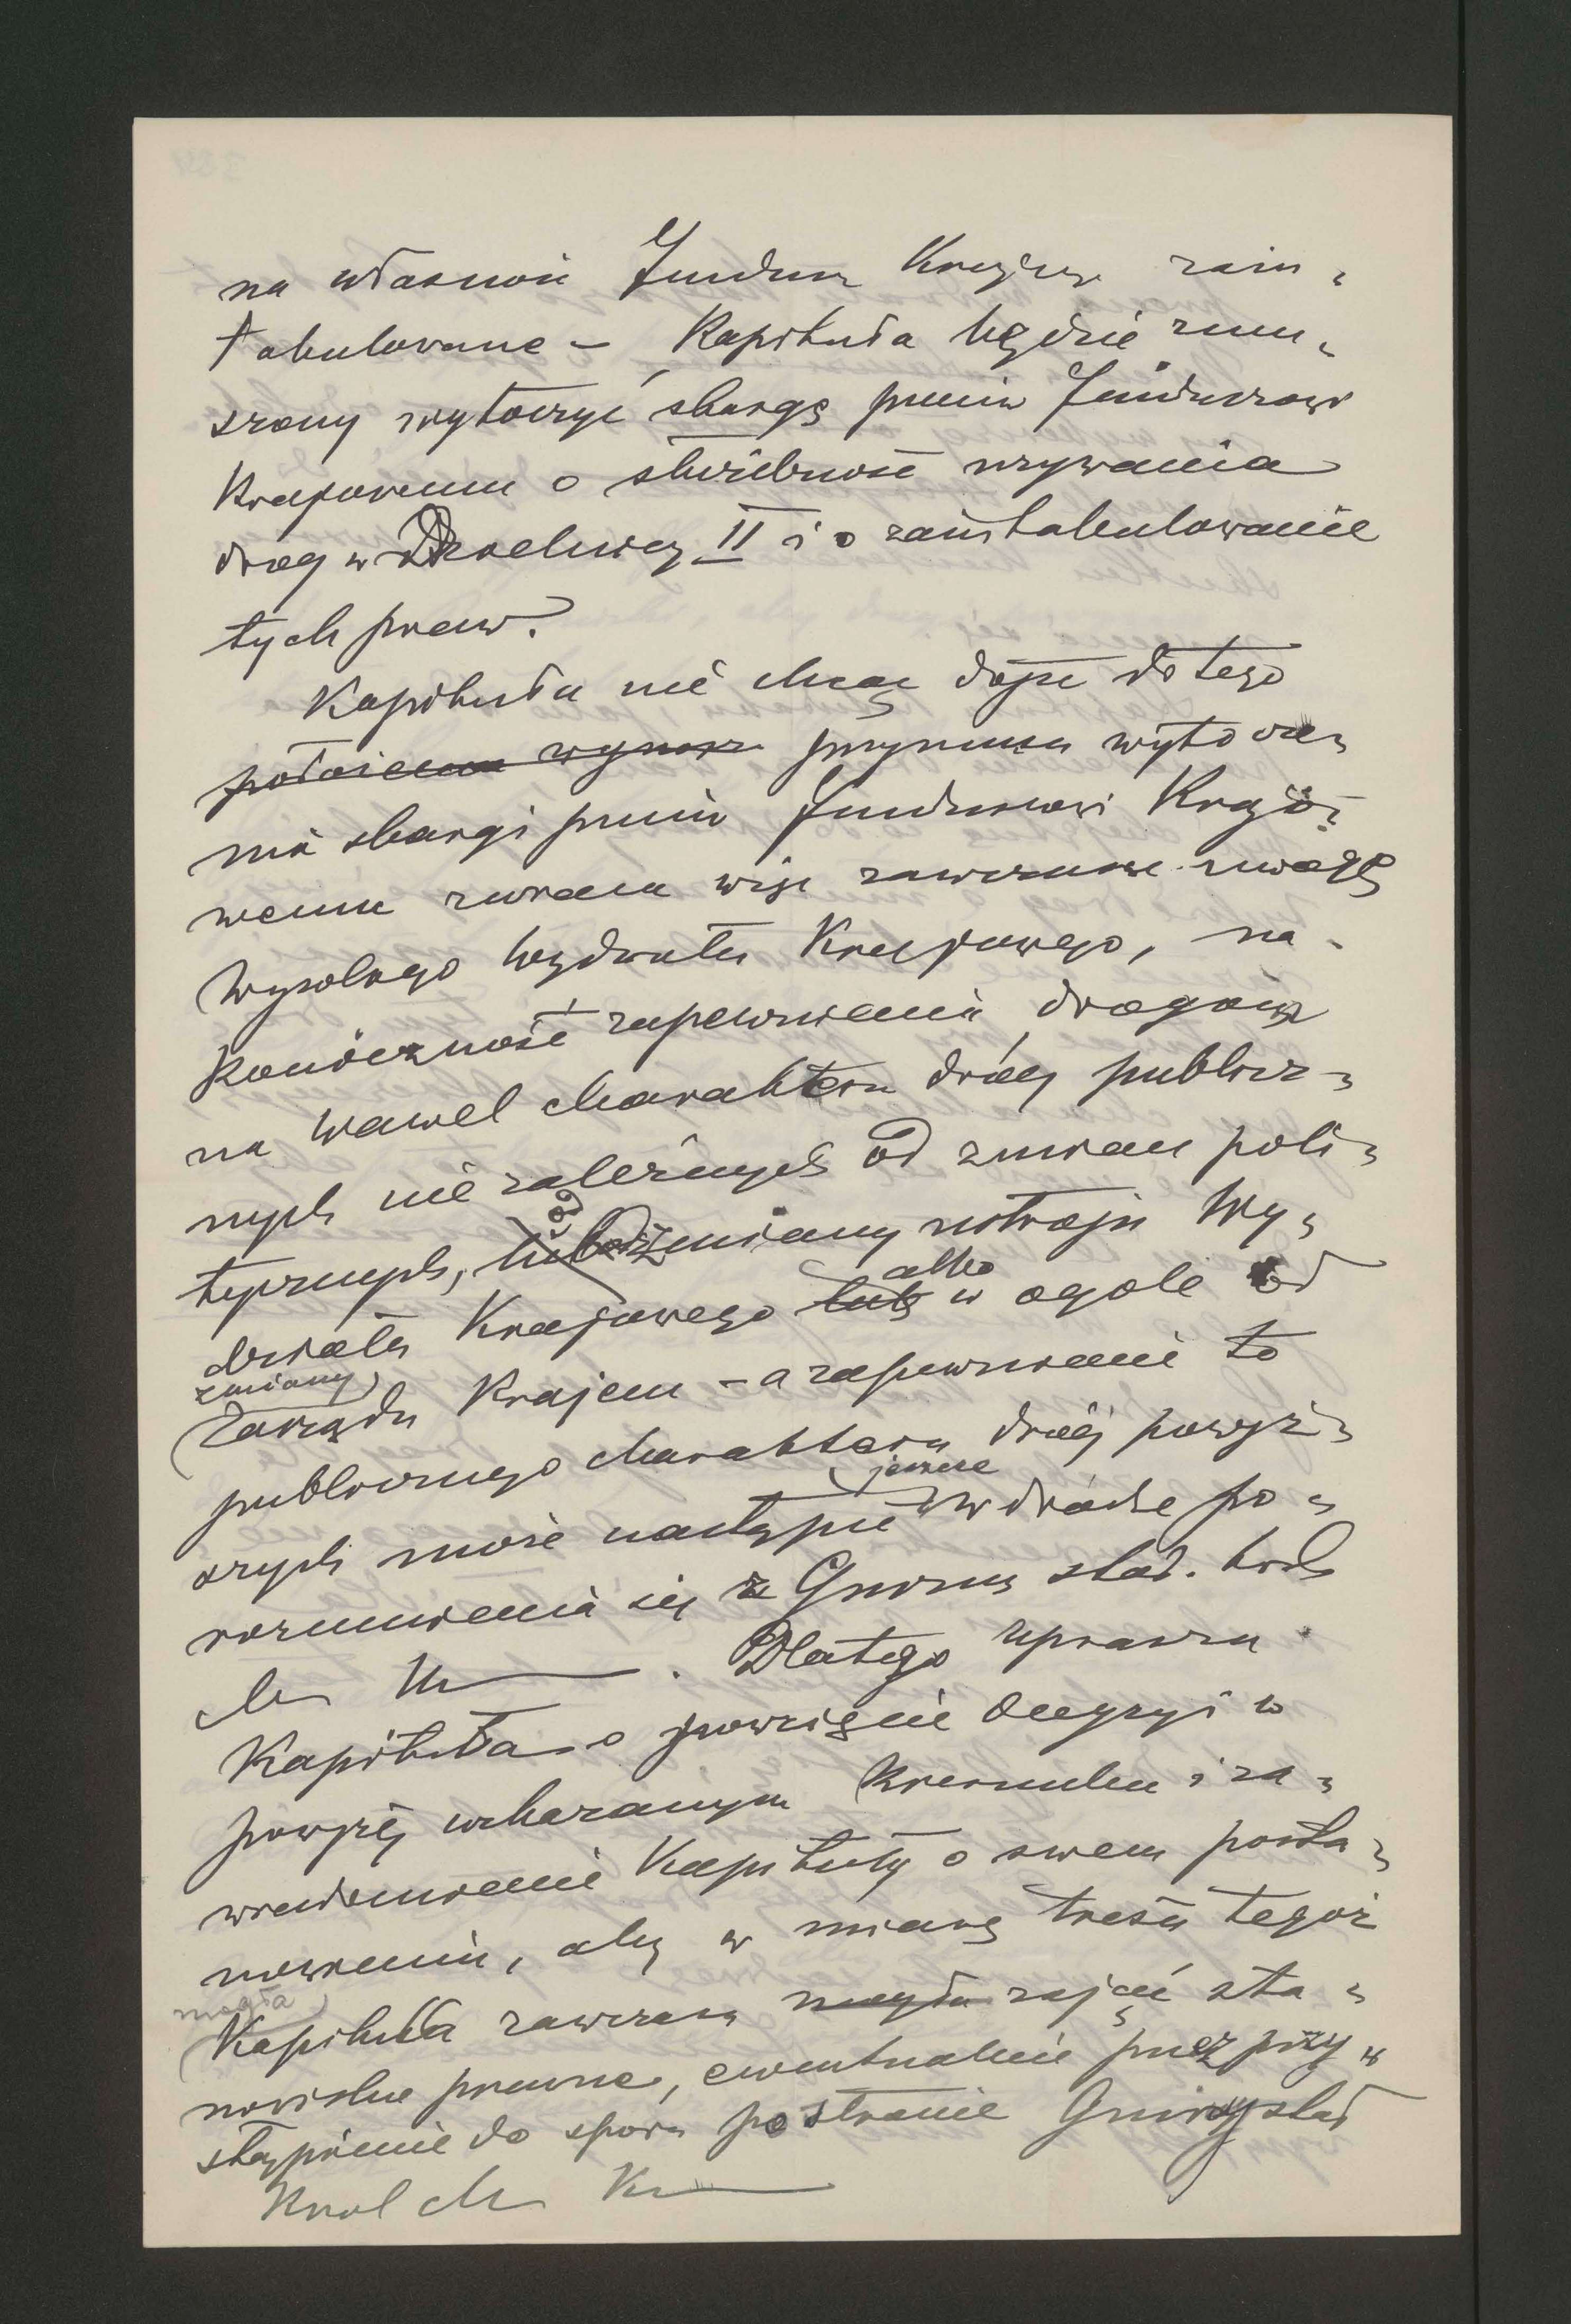 na własność Fundusz Krajow. zain-
tabulowane – Kapituła będzie zmu-
szony wytoczyć skargę przeciw Funduszowi
Krajowemu o służebność używania
dróg w II i o zaintabulowanie
tych praw.
Kapituła nie chcąc dojść do tego
przymusu wytocze-
nia skargi przeciw Funduszowi Krajo-
wemu zwraca więc zawczasu uwagę
Wysokiego Wydziału Krajowego, na
konieczność zapewnienia drogom
na Wawel charakteru dróg publicz-
nych nie zależnych od zmian poli-
tycznych, od zmiany ustroju Wy-
działu Krajowego albo w ogóle od
zmiany
Zarządu Krajem – a zapewnienie to
publicznego charakteru dróg powyż-
szych może nastąpić jeszcze w drodze po-
rozumienia się z Gminą stoł. król.
m. Kr. Dlatego uprasza
Kapituła o powzięcie decyzyi w
powyżej wskazanym kierunku i za-
wiadomienie Kapituły o swem posta-
nowieniu, aby w miarę treści tegoż
mogła
Kapituła zawczasu mogła zająć sta-
nowisko prawne, ewentualnie przez przy-
stąpienie do sporu po stronie Gminy stoł
Król m. Kr.